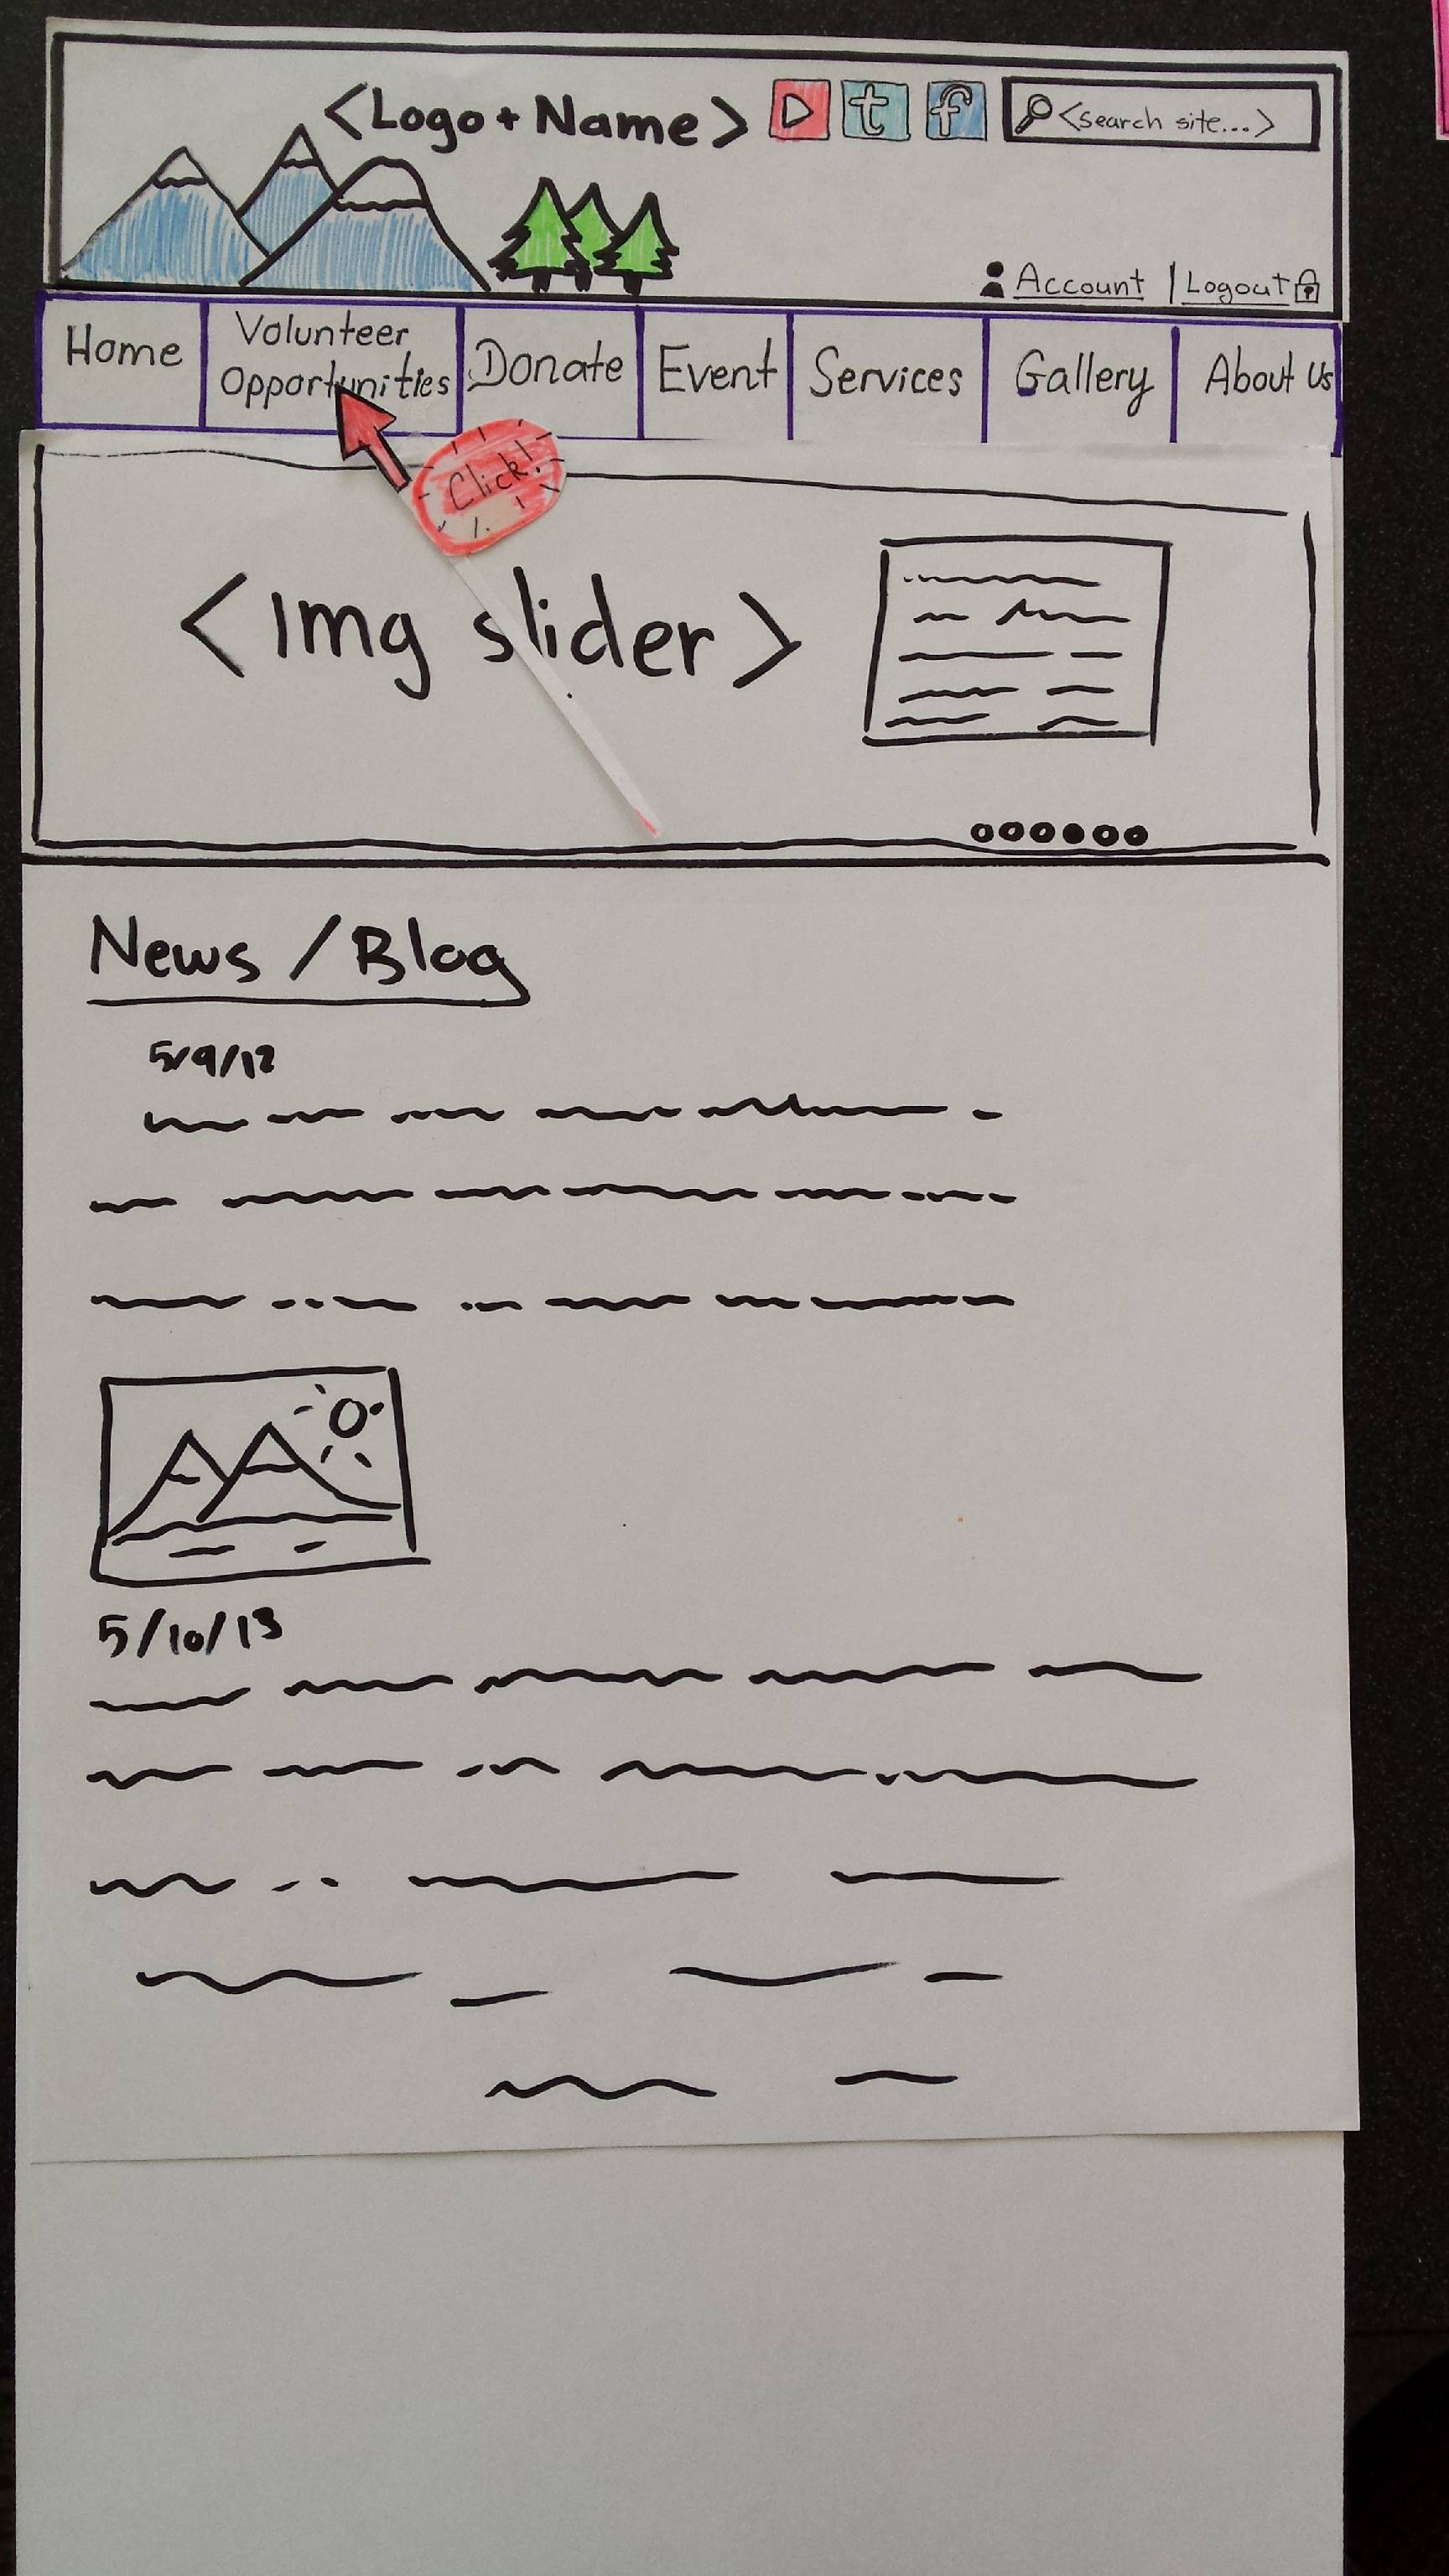 <Logo + Name>
t
f
<search site...>
Account | Logout
Home
Volunteer
Opportunities
Donate
Event
Services
Gallery
About Us
Click!
<Img slider>
News / Blog
5/9/12
5/10/13